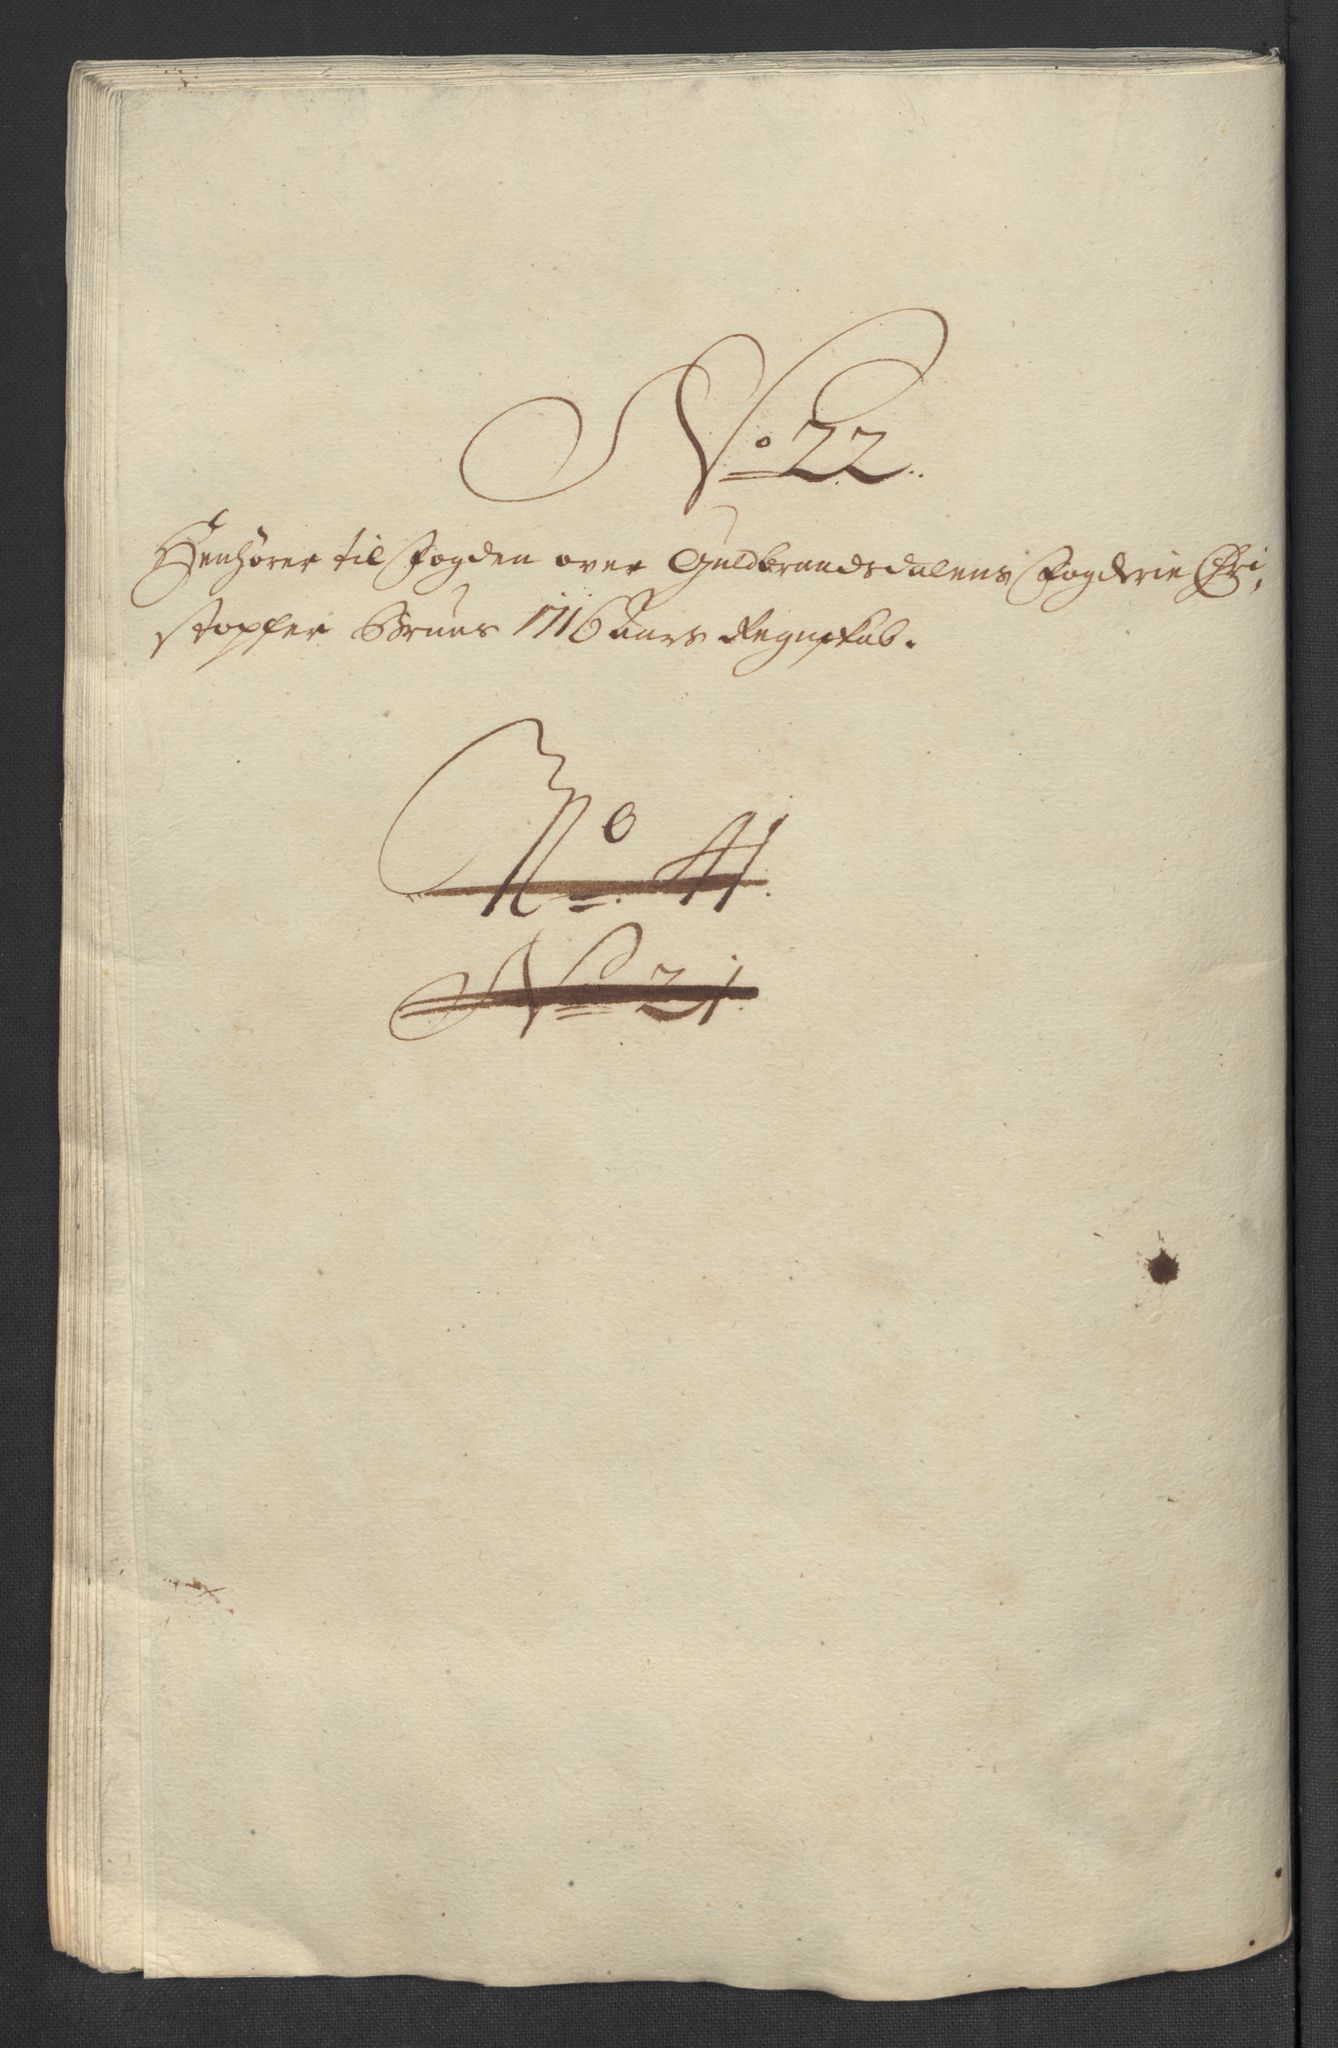 No 22.
Henhører til Fogden over Guldbrandsdalens Fogderie Chri,
stopher Bruuns 1716 Aars Regnskab.
No. 41.
No 21.